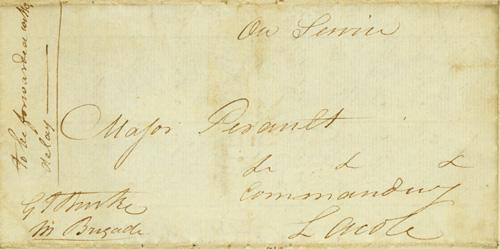 On Service
Major Perault
&c &c &c
Commanding
Lacole
to be forwarded with
delay
G T Burke
M Brigade